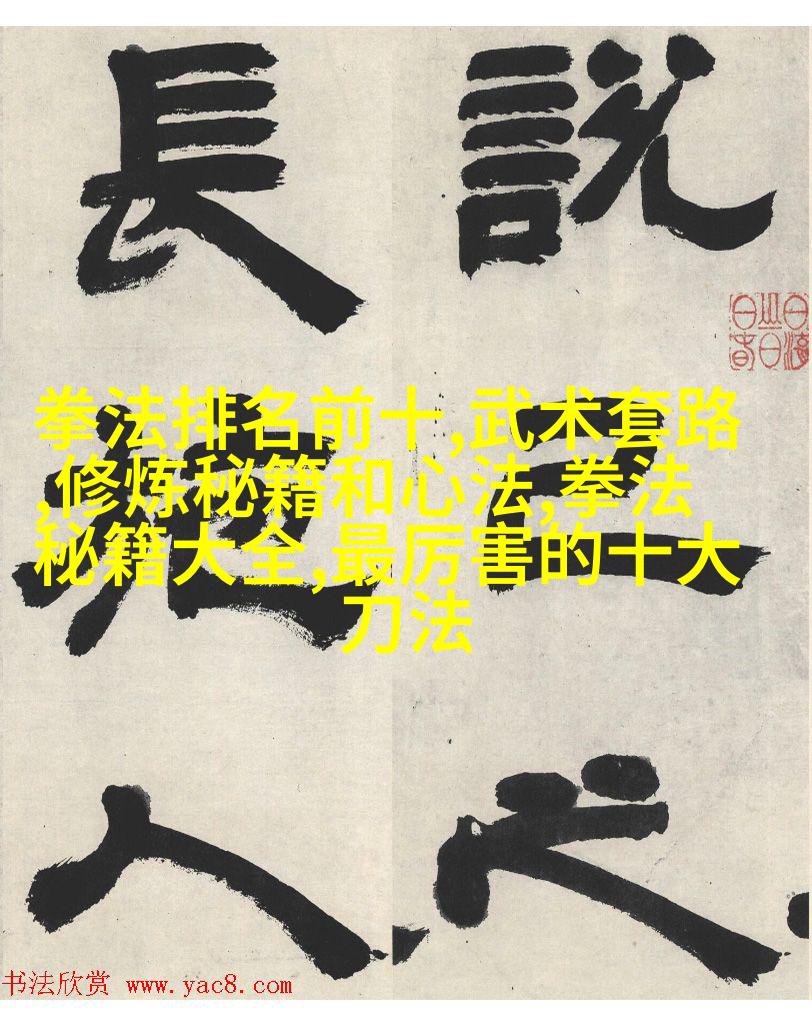 說己之
長施人
拳法排名前十,武术套路
,修炼秘籍和心法,拳法
秘籍大全,最厉害的十大
刀法
书法欣赏 www.yac8.com